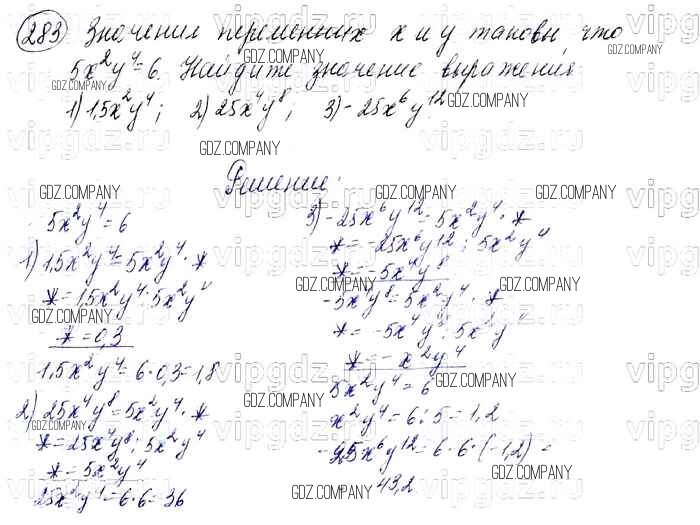 283 Значения переменных x и y таковы, что
5x²y⁴=6. Найдите значение выражения
1) 1,5x²y⁴; 2) 25x⁴y⁸; 3) -25x⁶y¹²
Решение:
5x²y⁴=6
1) 1,5x²y⁴=5x²y⁴·*
*=1,5x²y⁴:5x²y⁴
*=0,3
1,5x²y⁴=6·0,3=1,8
2) 25x⁴y⁸=5x²y⁴·*
*=25x⁴y⁸:5x²y⁴
*=5x²y⁴
25x²y⁴=6·6=36
3) -25x⁶y¹²=5x²y⁴·*
*=-25x⁶y¹²:5x²y⁴
*=-5x⁴y⁸
-5x⁴y⁸=5x²y⁴·*
*=-5x⁴y⁸:5x²y⁴
*=-x²y⁴
5x²y⁴=6
x²y⁴=6:5=1,2
-25x⁶y¹²=6·6·(-1,2)=
-43,2
GDZ.COMPANY
vipgdz.ru